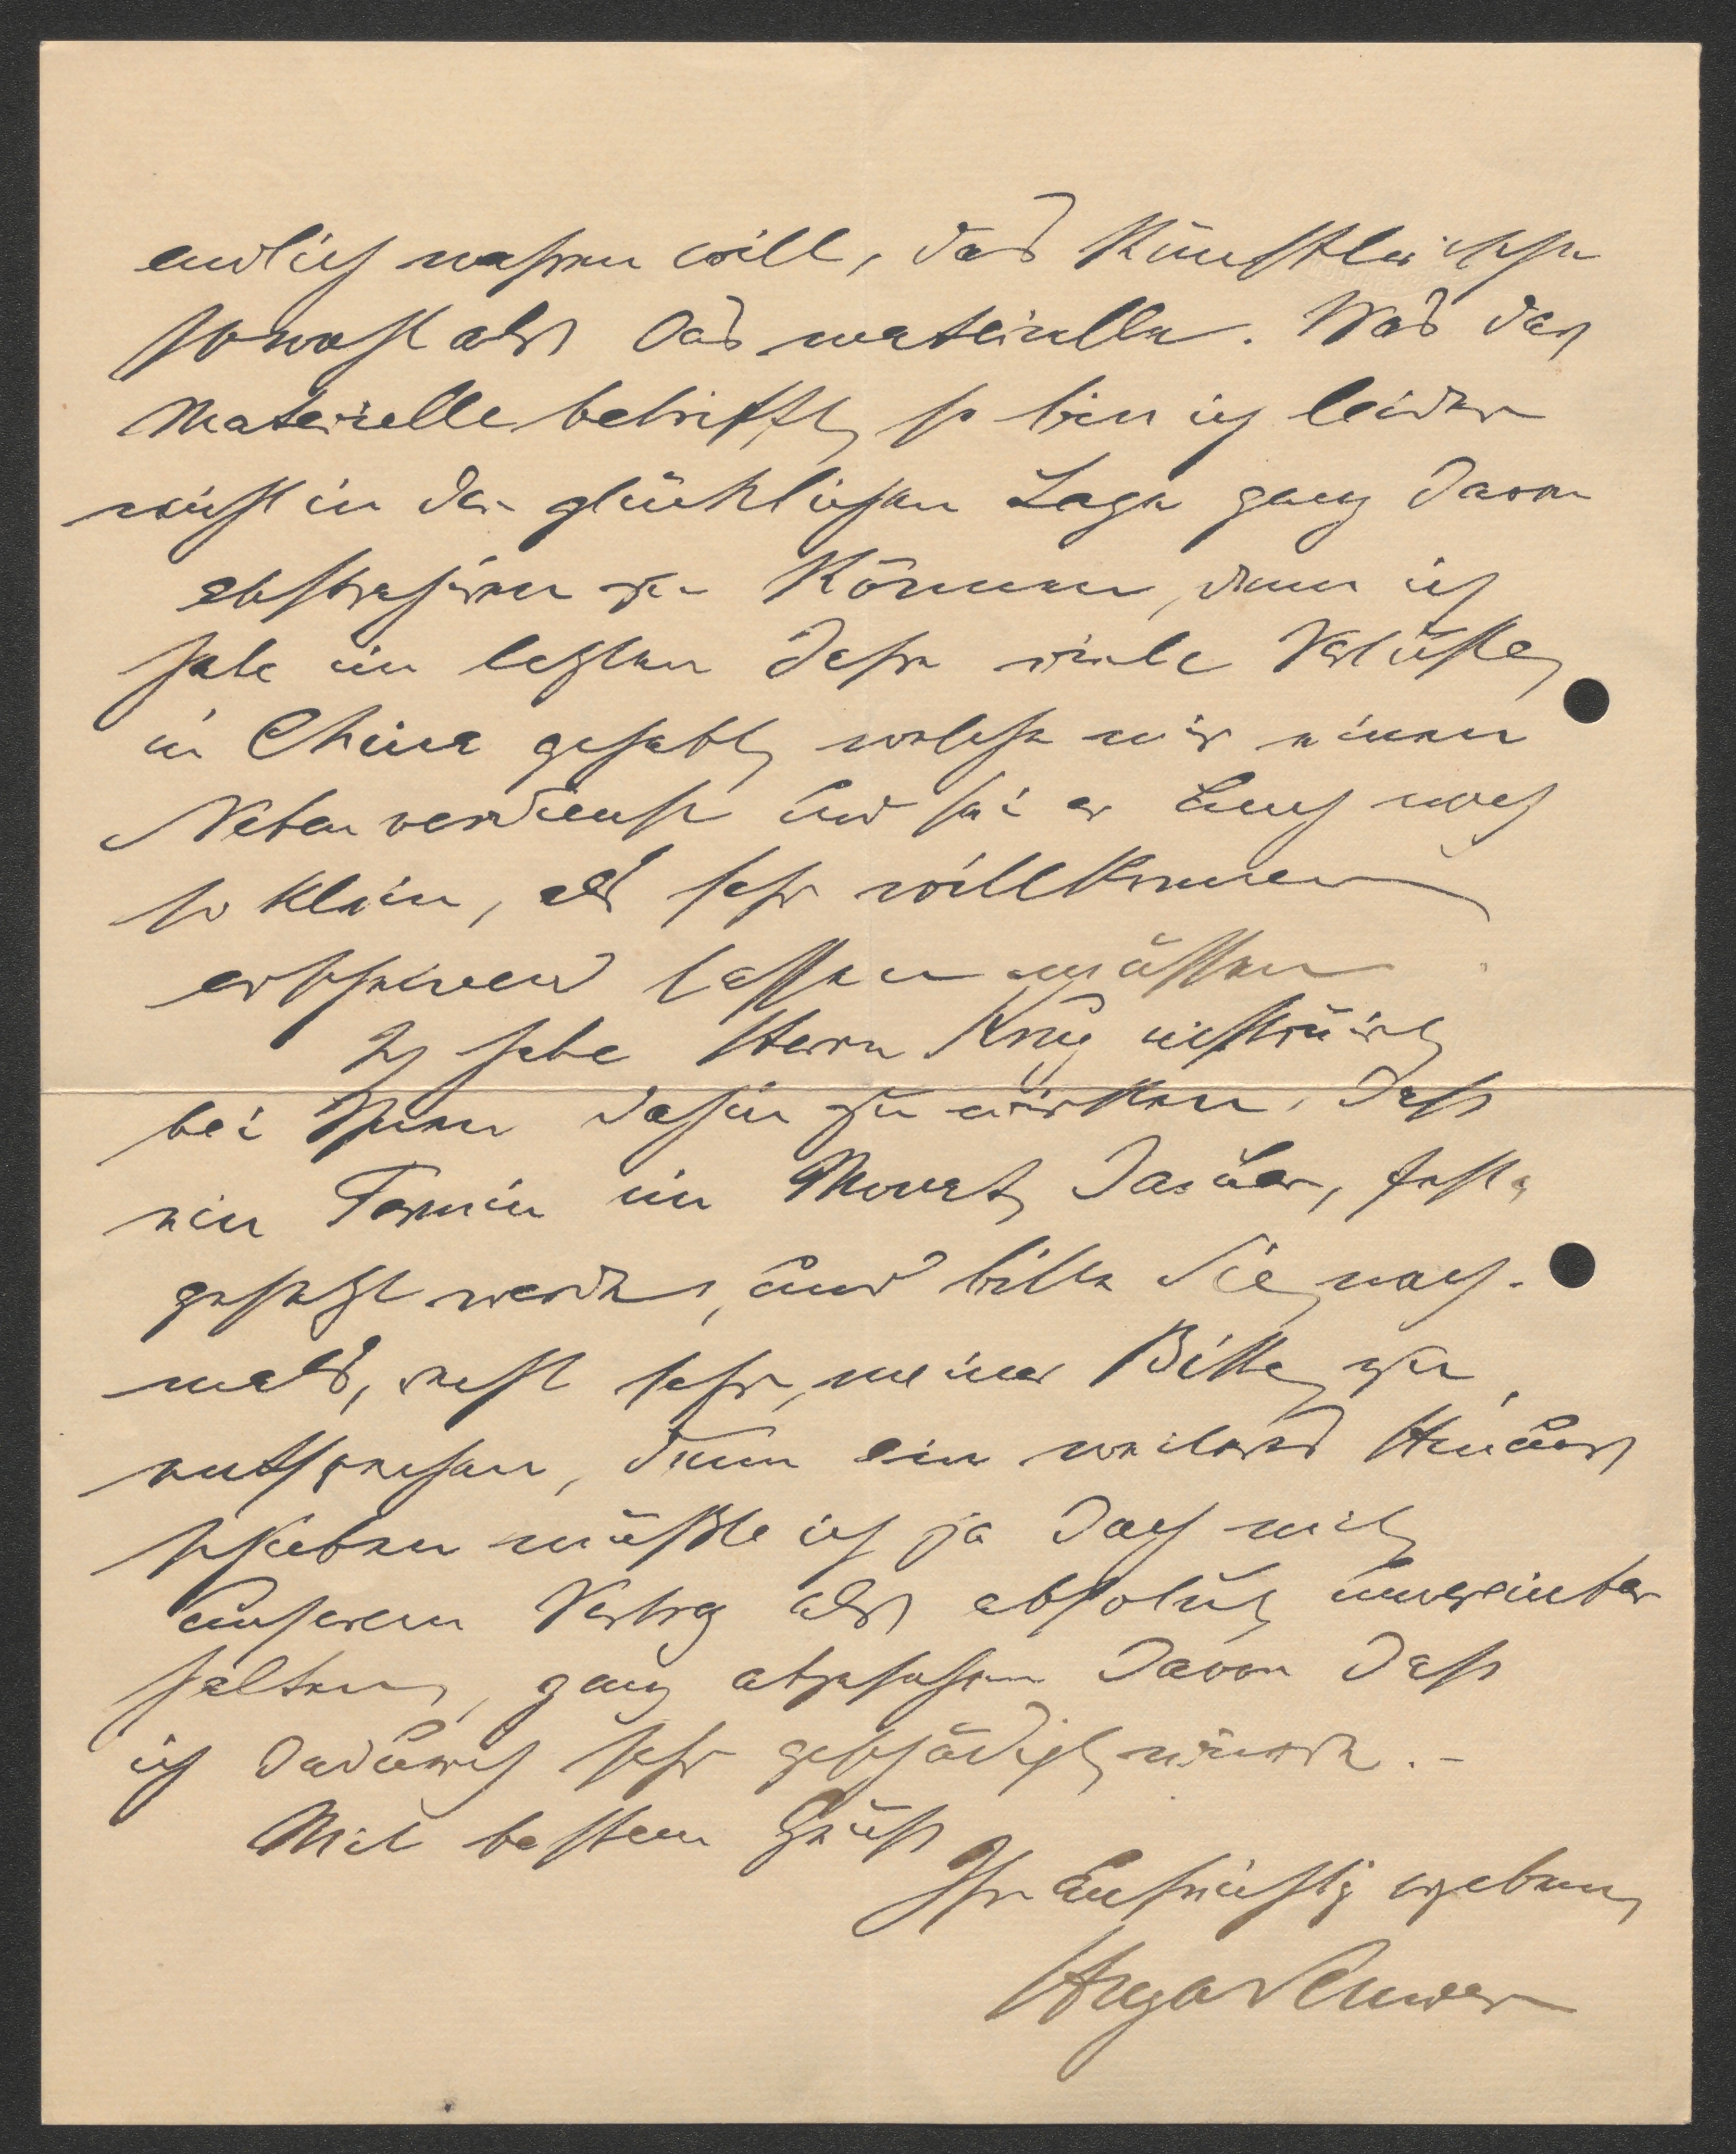 endlich wahren will, das Künstlerische
sowohl als das materielle. Was das
Materielle betrifft, so bin ich leider
nicht in der glücklichen Lage ganz davon
abstrahiren zu können, denn ich
habe im letzten Jahre viele Verluste
in China gehabt, welche mir einen
Nebenverdienst und sei er auch noch
so klein, als sehr willkommen
erscheinend lassen müssen
Ich habe Herrn Krug instruirt
bei Ihnen dahin zu wirken, dass
ein Termin im Monat Januar, fest
gesetzt werde, und bitte Sie noch-
mals, recht sehr, meiner Bitte zu
entsprechen, denn ein weiteres Hinaus
schieben müsste ich ja doch mit
unserem Vertrag als absolut unvereinbar
halten, ganz abgesehen davon dass
ich dadurch sehr geschädigt würde. -
Mit bestem Gruss
Ihr Aufrichtig ergebener
Hugo